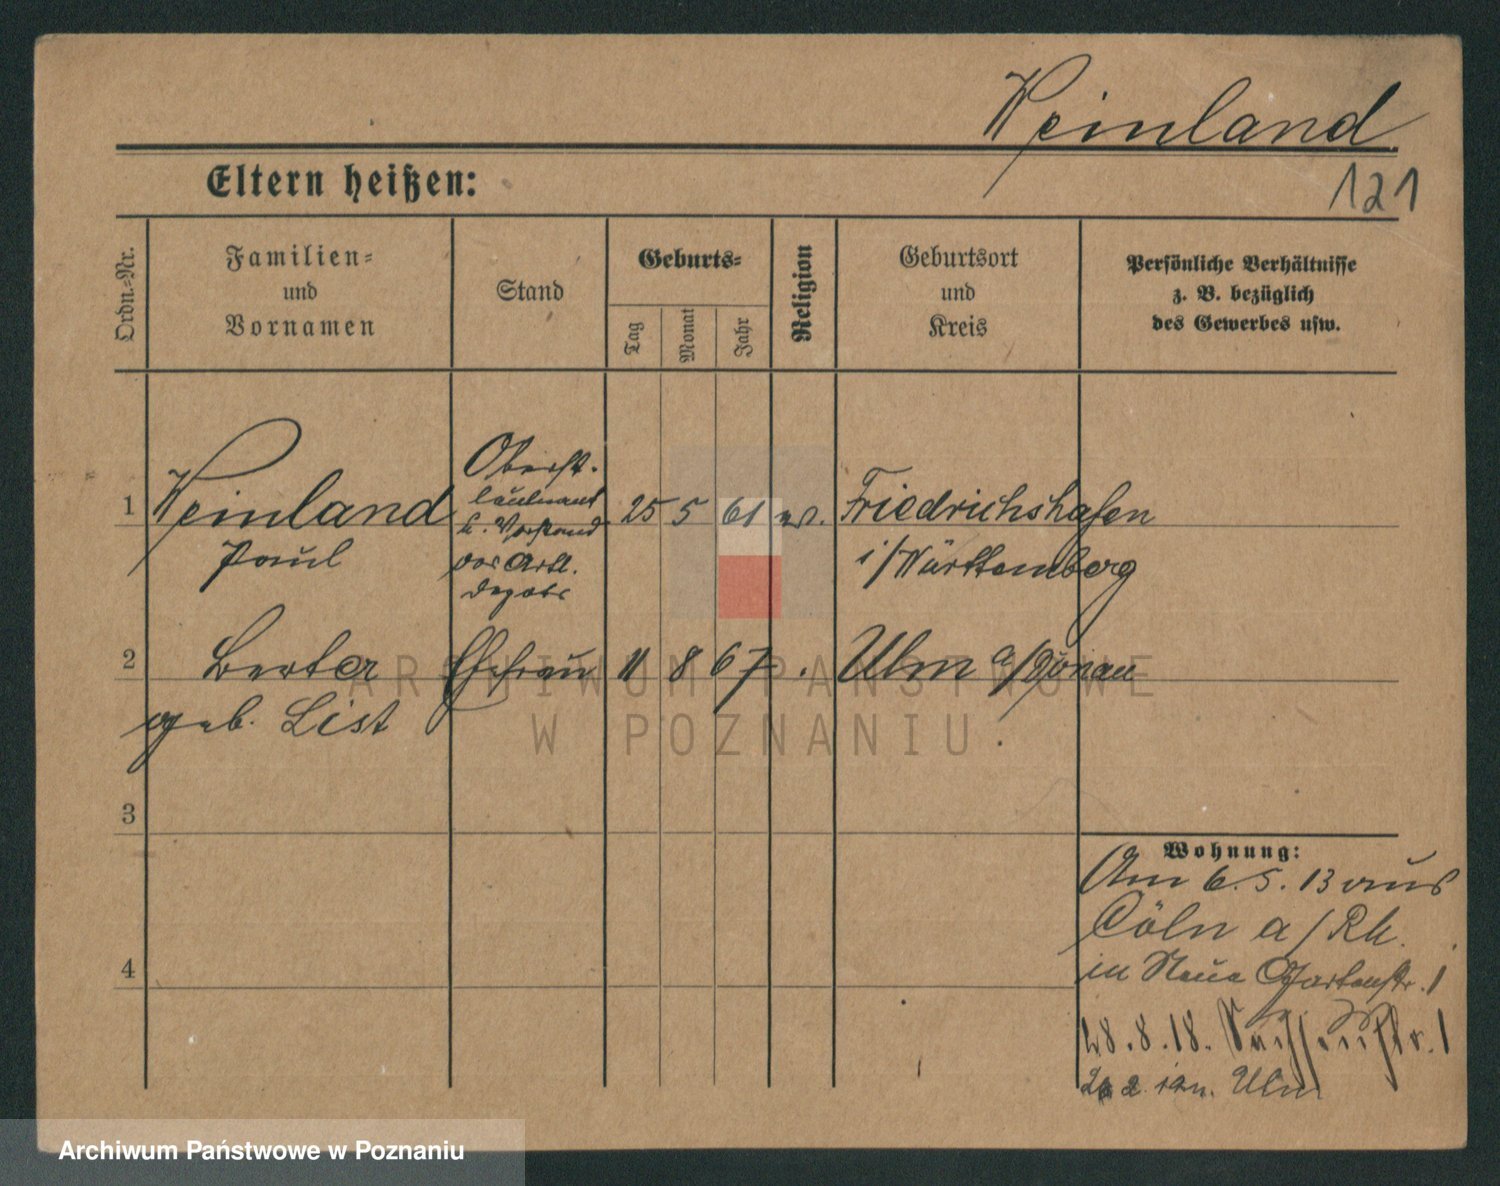 Weinland
121
Eltern heißen:
Ordn.-Nr.
Familien-
und
Vornamen
Stand
Geburts-
Tag
Monat
Jahr
Religion
Geburtsort
und
Kreis
Persönliche Verhältnisse
z. B. bezüglich
des Gewerbes usw.
1
Weinland
Paul
Oberst-
leutnant
u. Vorstand
des Artl.
Depots
25 5 61 ev.
Friedrichshafen
i/Württemberg
2
Berta
geb. List
Ehefrau
11 8 67
Ulm a/Donau
3
4
Wohnung:
Am 6.5.13 aus
Cöln a/Rh.
in Neue Gartenstr. 1
28.8.18. 1
Ulm
ARCHIWUM PAŃSTWOWE
W POZNANIU
Archiwum Państwowe w Poznaniu